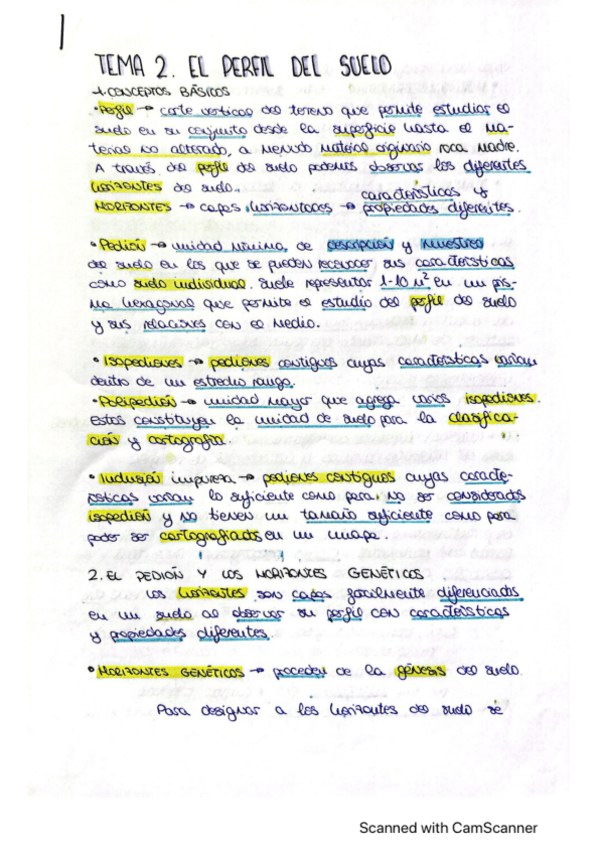 1
TEMA 2. EL PERFIL DEL SUELO
1. CONCEPTOS BÁSICOS
• Perfil → corte vertical del terreno que permite estudiar el
suelo en su conjunto desde la superficie hasta el ma-
terias no alterado, a menudo material originario roca madre.
A través del perfil del suelo podemos observar los diferentes
horizontes del suelo.
HORIZONTES → capas horizontales → características y
propiedades diferentes.
• Pedión → unidad mínima de descripción y muestreo
del suelo en los que se pueden reconocer sus características
como suelo individual. Suele representar 1-10 m² en un pris-
ma hexagonal que permite el estudio del perfil del suelo
y sus relaciones con el medio.
• Isopediones → pediones contiguos cuyas características varían
dentro de un estrecho rango.
• Polipedión → unidad mayor que agrega varios isopediones.
Estos constituyen la unidad de suelo para la clasifica-
ción y cartografía.
• Inclusión impureza → pediones contiguos cuyas caracte-
rísticas varían lo suficiente como para no ser considerados
isopedión y no tienen un tamaño suficiente como para
poder ser cartografiados en un mapa.
2. EL PEDIÓN Y LOS HORIZONTES GENÉTICOS
Los horizontes son capas gralmente diferenciadas
en un suelo al observar su perfil con características
y propiedades diferentes.
• HORIZONTES GENÉTICOS → proceden de la génesis del suelo.
Para designar a los horizontes del suelo se
Scanned with CamScanner